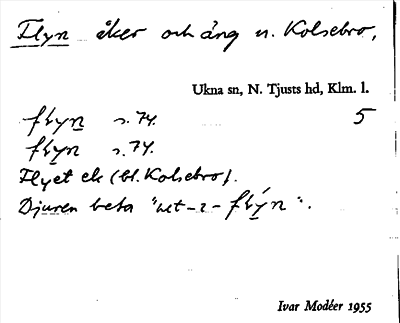 Flyn åker och äng n. Kolsebro,
Ukna sn, N. Tjusts hd, Klm. l.
flyn s. 74. 5
flyn s. 74.
Flyet ek (bl. Kolsebro).
Djuren beta "ut-i-flýn".
Ivar Modéer 1955